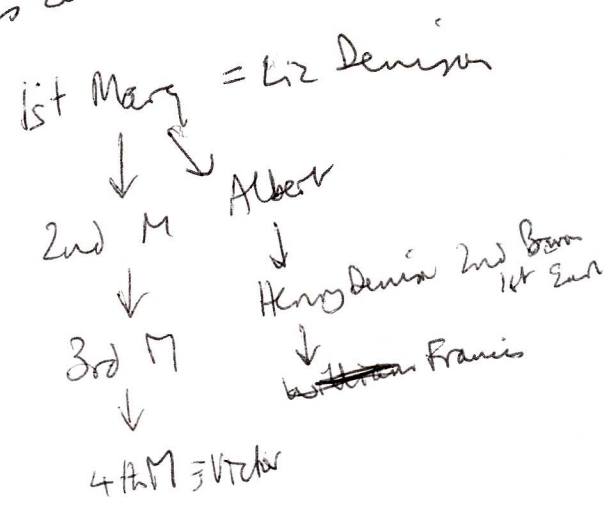 1st Marq = Liz Denison
Albert
2nd M
Henry Denison 2nd Baron
1st Earl
3rd M
Francis
4th M ≡ Victor